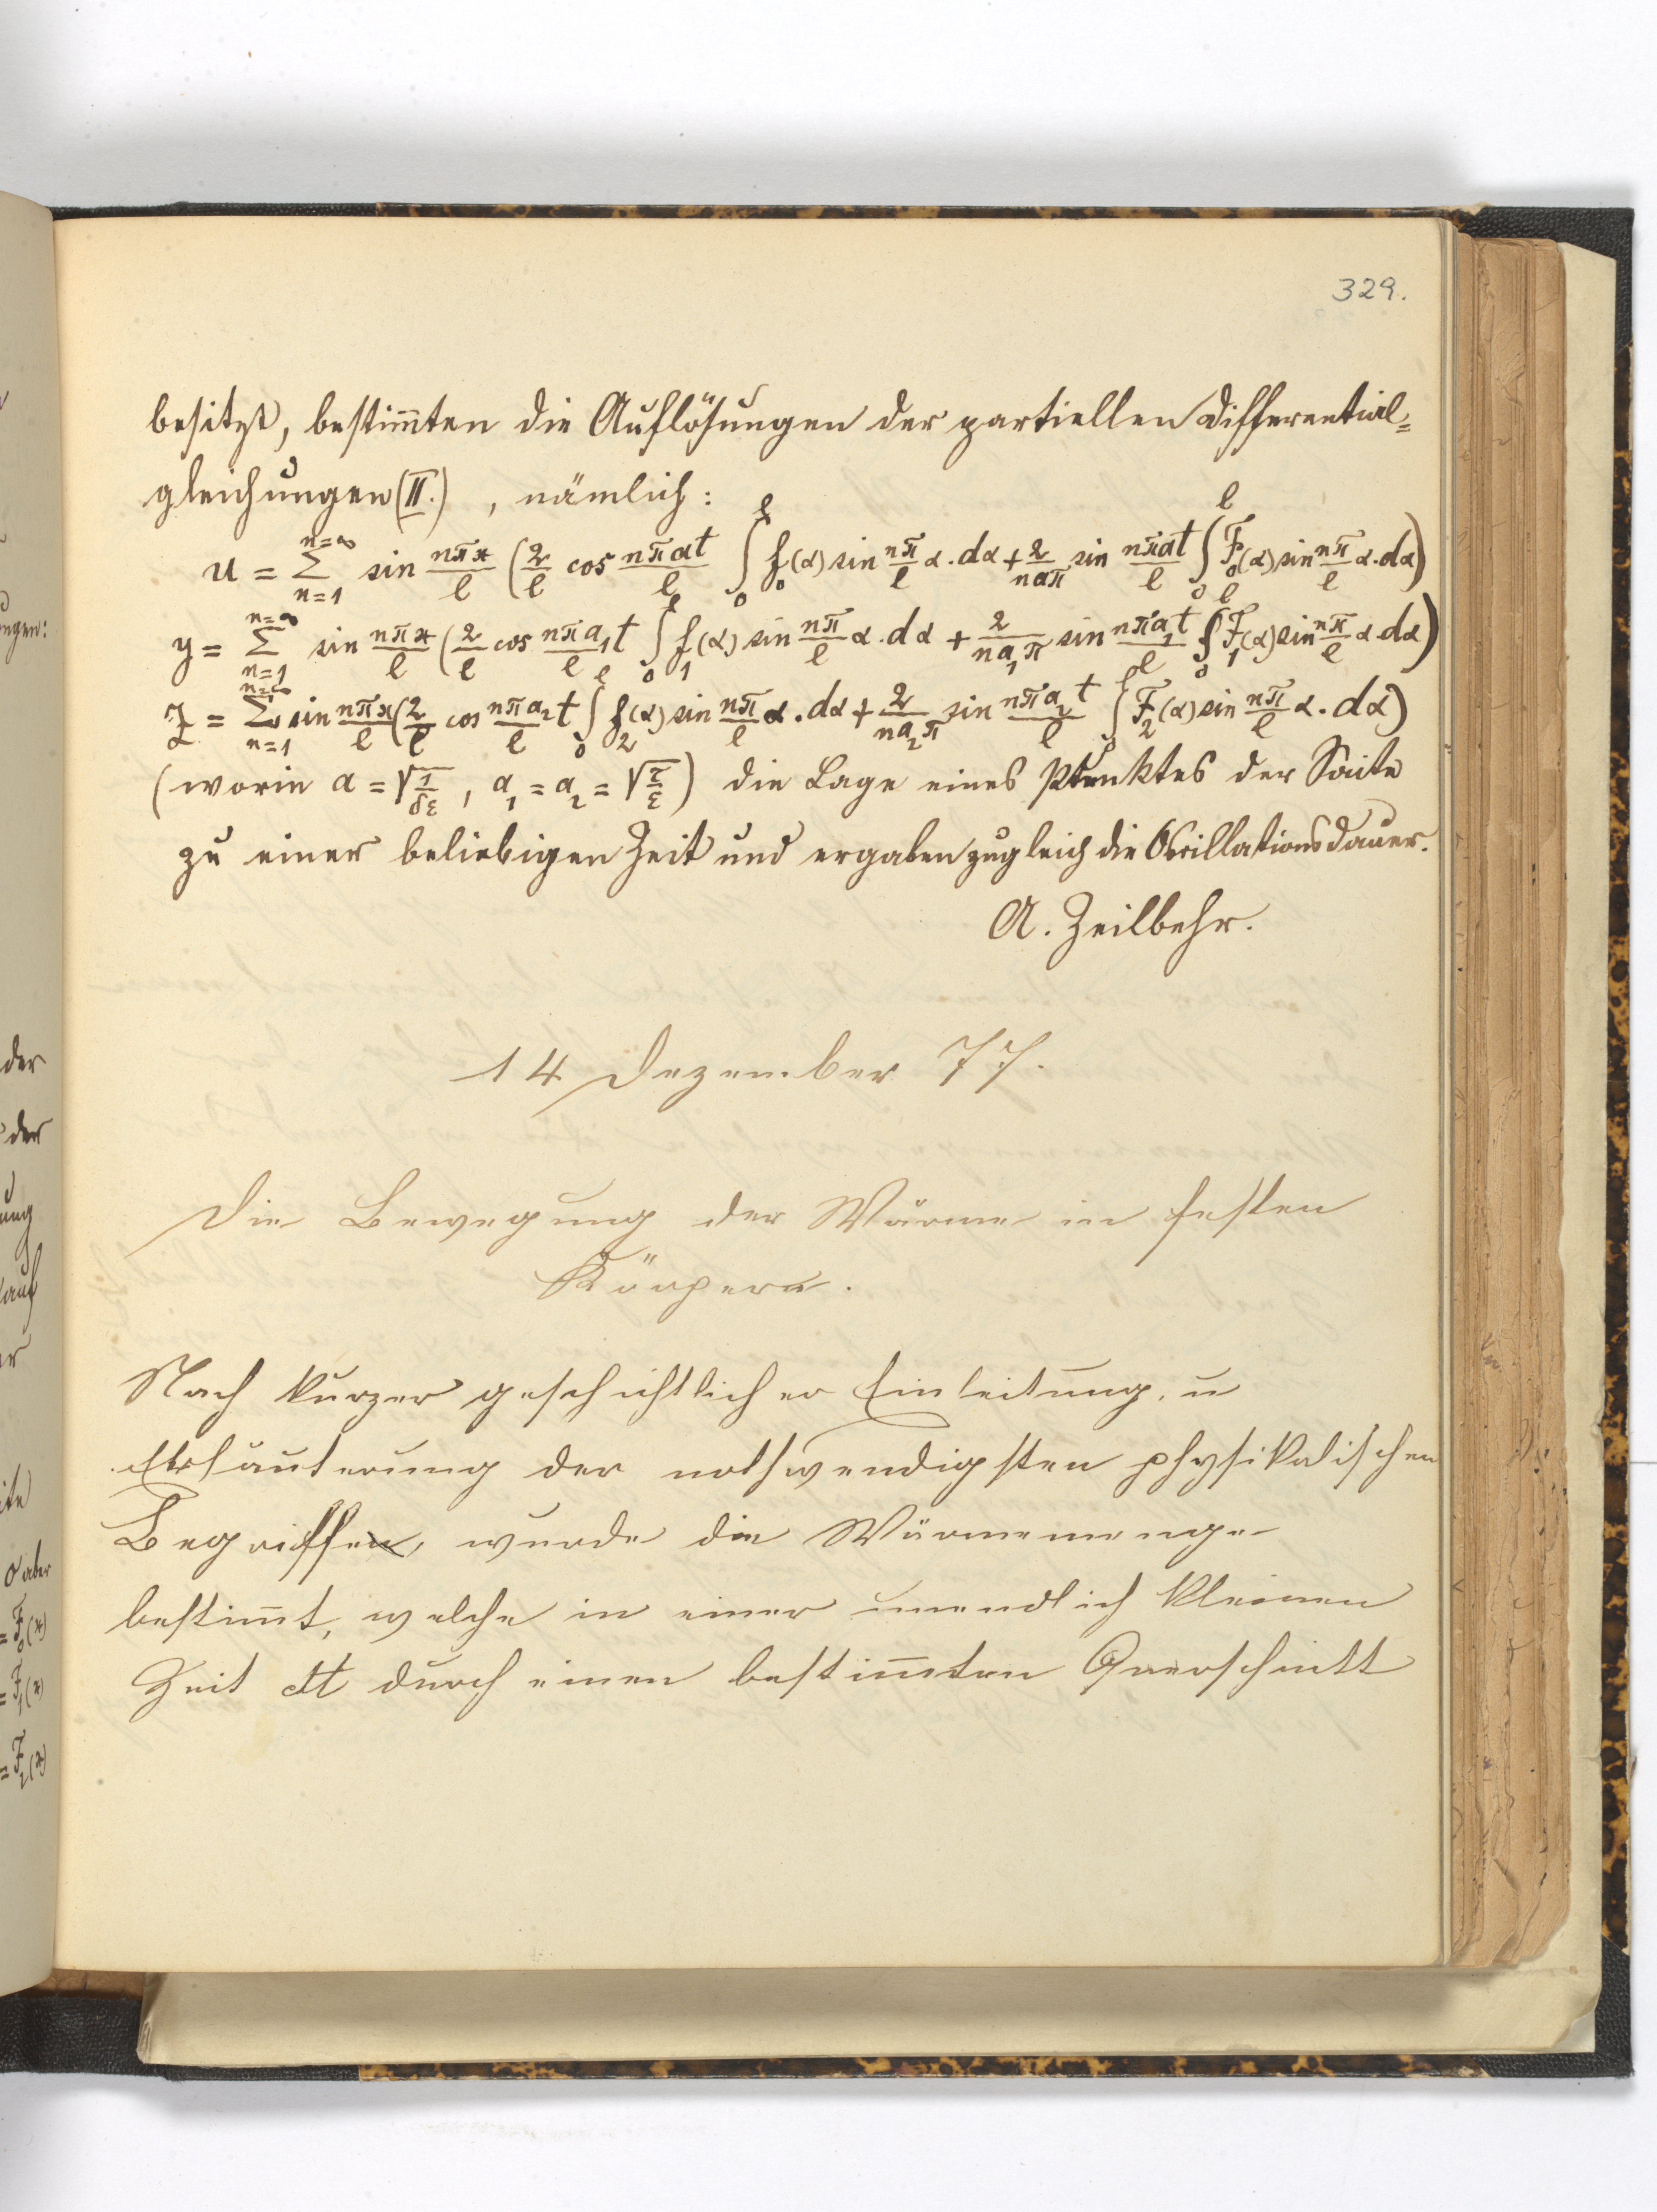 329.
besitzt, bestim̅ten die Auflösungen der partiellen Differential=
gleichungen (II.) , nämlich:
u = \sum_{n=1}^{n=∞} sin \frac{nπx}{l} ( \frac{2}{l} cos \frac{nπat}{l} \int_0^l f_0(α) sin \frac{nπ}{l} α . dα + \frac{2}{naπ} sin \frac{nπat}{l} \int_0^l F_0(α) sin \frac{nπ}{l} α . dα )
y = \sum_{n=1}^{n=∞} sin \frac{nπx}{l} ( \frac{2}{l} cos \frac{nπa_1t}{l} \int_0^l f_1(α) sin \frac{nπ}{l} α . dα + \frac{2}{na_1π} sin \frac{nπa_1t}{l} \int_0^l F_1(α) sin \frac{nπ}{l} α . dα )
z = \sum_{n=1}^{n=∞} sin \frac{nπx}{l} ( \frac{2}{l} cos \frac{nπa_2t}{l} \int_0^l f_2(α) sin \frac{nπ}{l} α . dα + \frac{2}{na_2π} sin \frac{nπa_2t}{l} \int_0^l F_2(α) sin \frac{nπ}{l} α . dα )
(worin a = √\frac{1}{δε} , a_1 = a_2 = √\frac{τ}{ε} ) die Lage eines Punktes der Saite
zu einer beliebigen Zeit und ergaben zugleich die Oscillationsdauer.
A. Zeilbehr.
14 Dezember 77.
Die Bewegung der Wärme in festen
Körpern.
Nach kurzer geschichtlicher Einleitung, u
Erläuterung der nothwendigsten physikalischen
Begriffe, wurde die Wärmemenge
bestim̅t, welche in einer unendlich kleinen
Zeit dt durch einen bestim̅ten Querschnitt